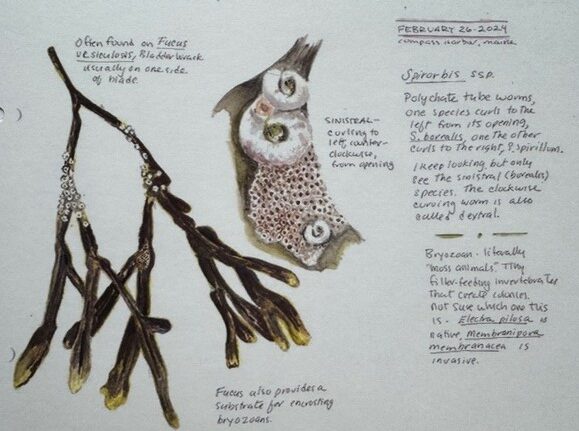 Often found on Fucus
vesiculosis, Bladderwrack
usually on one side
of blade.
SINISTRAL-
curling to
left, counter-
clockwise,
from opening
FEBRUARY 26-2024
compass harbor, maine
Spirorbis ssp.
Polychate tube worms,
one species curls to the
left from its opening,
S. borealis, one the other
curls to the right, S. spirillum.
I keep looking but only
see the sinistral (borealis)
species. The clockwise
curving worm is also
called dextral.
Bryozoan - literally
"moss animals" Tiny
filter-feeding invertebrates
that create colonies.
Not sure which one this
is - Electra pilosa is
native, Membranipora
membranacea is
invasive.
Fucus also provides a
substrate for encrusting
bryozoans.